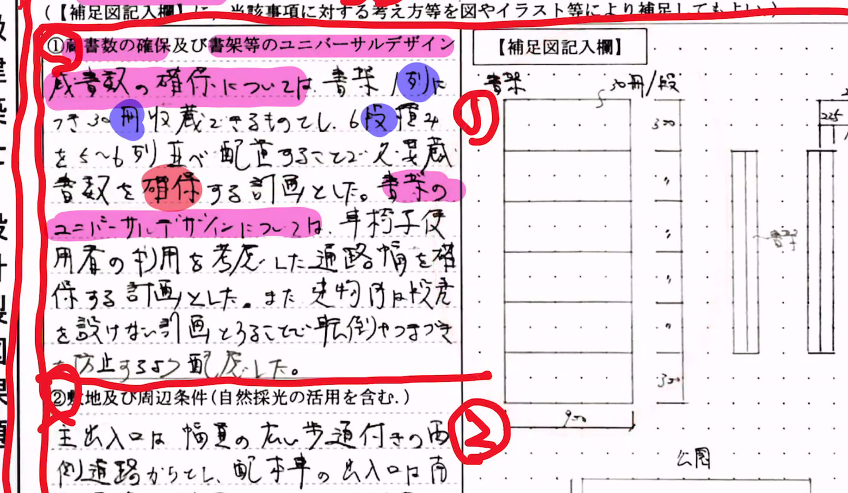 (【補足図記入欄】に、当該事項に対する考え方等を図やイラスト等により補足してもよい。)
①蔵書数の確保及び書架等のユニバーサルデザイン
蔵書数の確保については、書架1列に
つき30冊収蔵できるものとし、6段積み
を5〜6列並べ配置することで必要蔵
書数を確保する計画とした。書架の
ユニバーサルデザインについては、車椅子使
用者の利用を考慮した通路幅を確
保する計画とした。また建物内は段差
を設けない計画とすることで転倒やつまづき
を防止するよう配慮した。
②敷地及び周辺条件(自然採光の活用を含む.)
主出入口は幅員の広い歩道付きの南
側道路からとし、配本車の出入口は南
【補足図記入欄】
書架
30冊/段
①
300
〃
〃
〃
〃
300
900
225
書架
②
公園